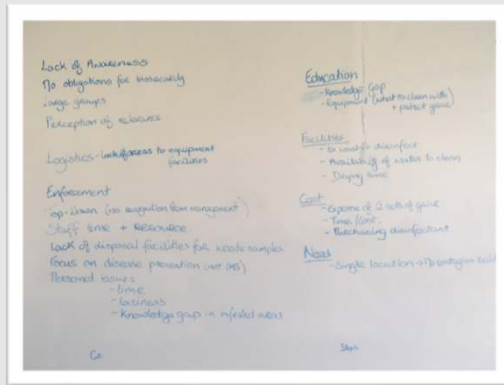 Lack of Awareness
No obligations for biosecurity
Large groups
Perception of relevance
Logistics - lack of access to equipment
facilities
Enforcement
Top-Down (no recognition from management)
Staff time + Resource
Lack of disposal facilities for waste samples
Focus on disease prevention (not INS)
Personal issues
- time
- laziness
- Knowledge gap in infested areas
Education
- Knowledge Gap
- Equipment (what to clean with)
+ protect gear
Facilities
- To wash + disinfect
- Availability of water to clean
- Drying time
Cost
- Expense of 2 sets of gear
- Time/cost
- Purchasing disinfectant
Need
- Single location →